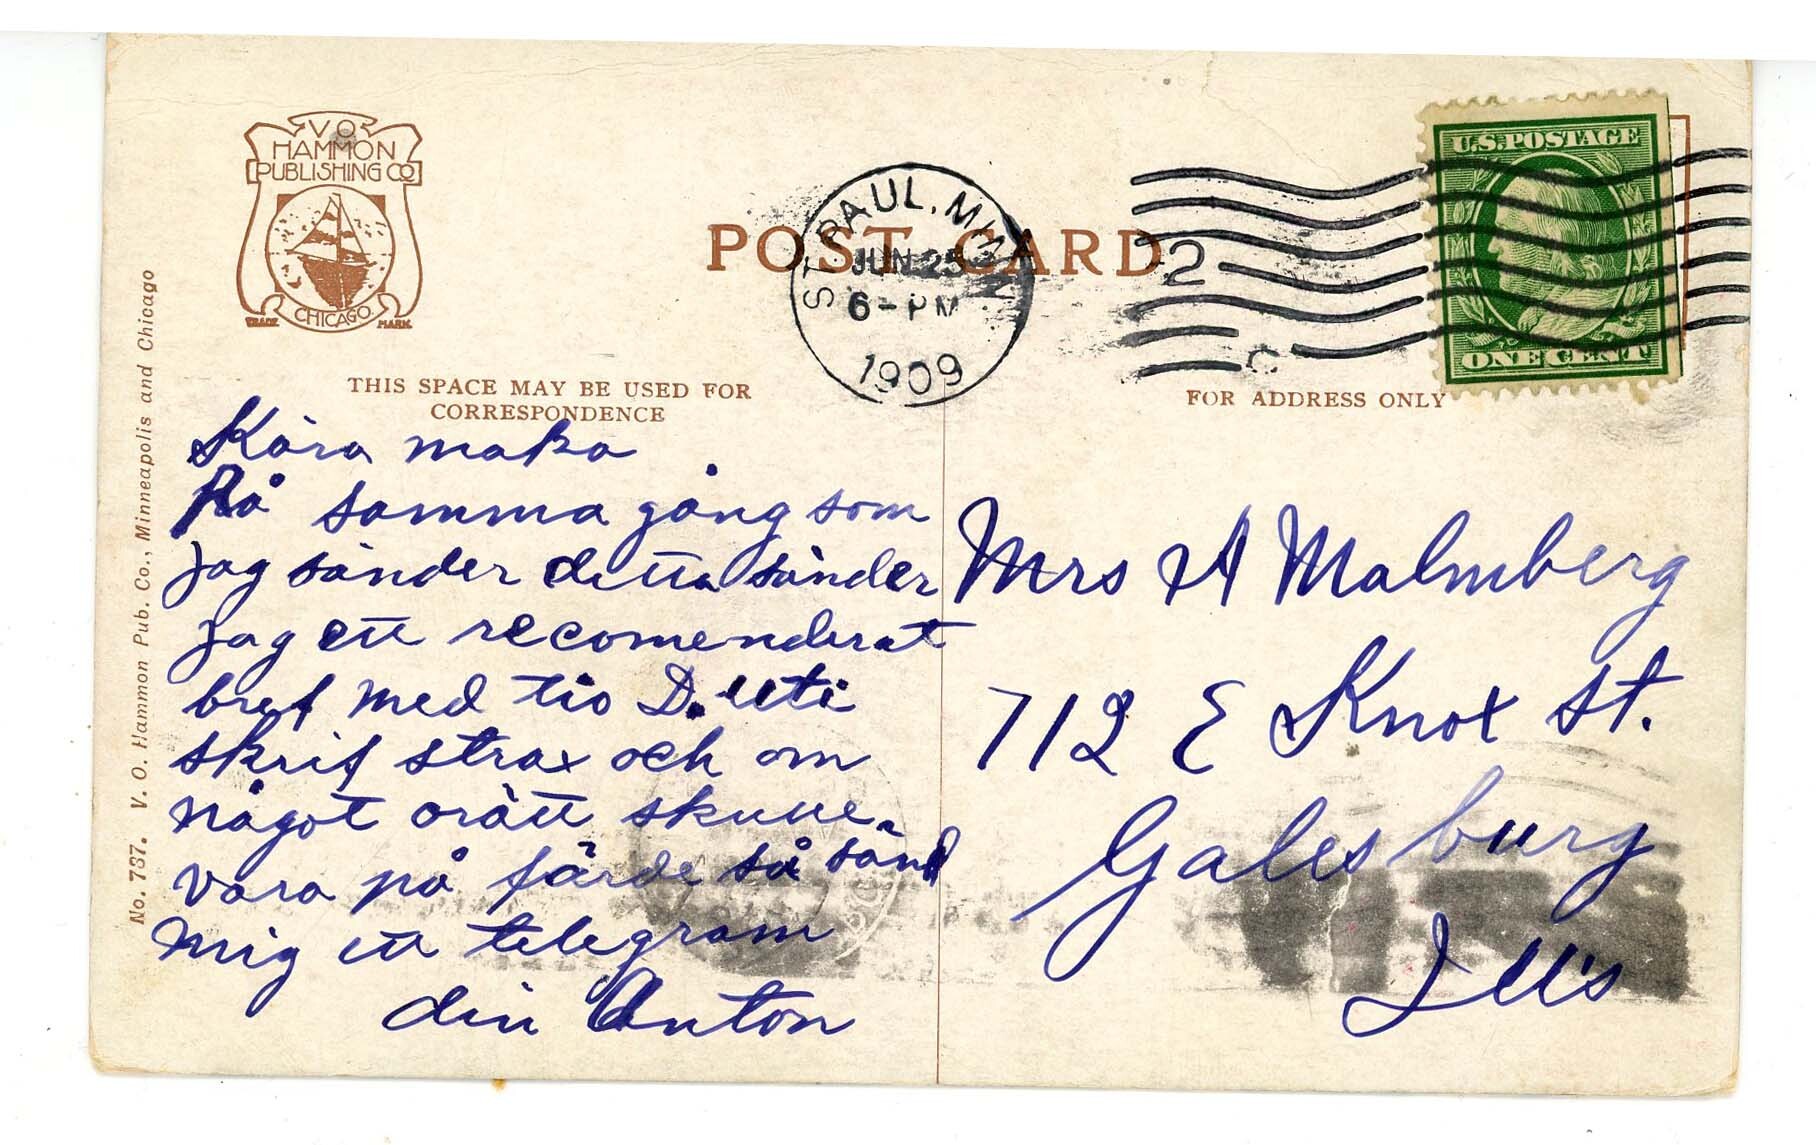 V O
HAMMON
PUBLISHING CO
CHICAGO.
TRADE MARK
POST CARD
ST. PAUL, MINN.
JUN 25
6 - PM
1909
2
C
U.S. POSTAGE
ONE CENT
THIS SPACE MAY BE USED FOR
CORRESPONDENCE
FOR ADDRESS ONLY
No. 737. V. O. Hammon Pub. Co., Minneapolis and Chicago
Kära maka
På samma gång som
jag sänder detta sänder
jag ett recomenderat
bref med tio D. uti
skrif strax och om
något orätt skulle
vara på färde så sänd
mig ett telegram
din Anton
Mrs A Malmberg
712 E Knox St.
Galesburg
Ills